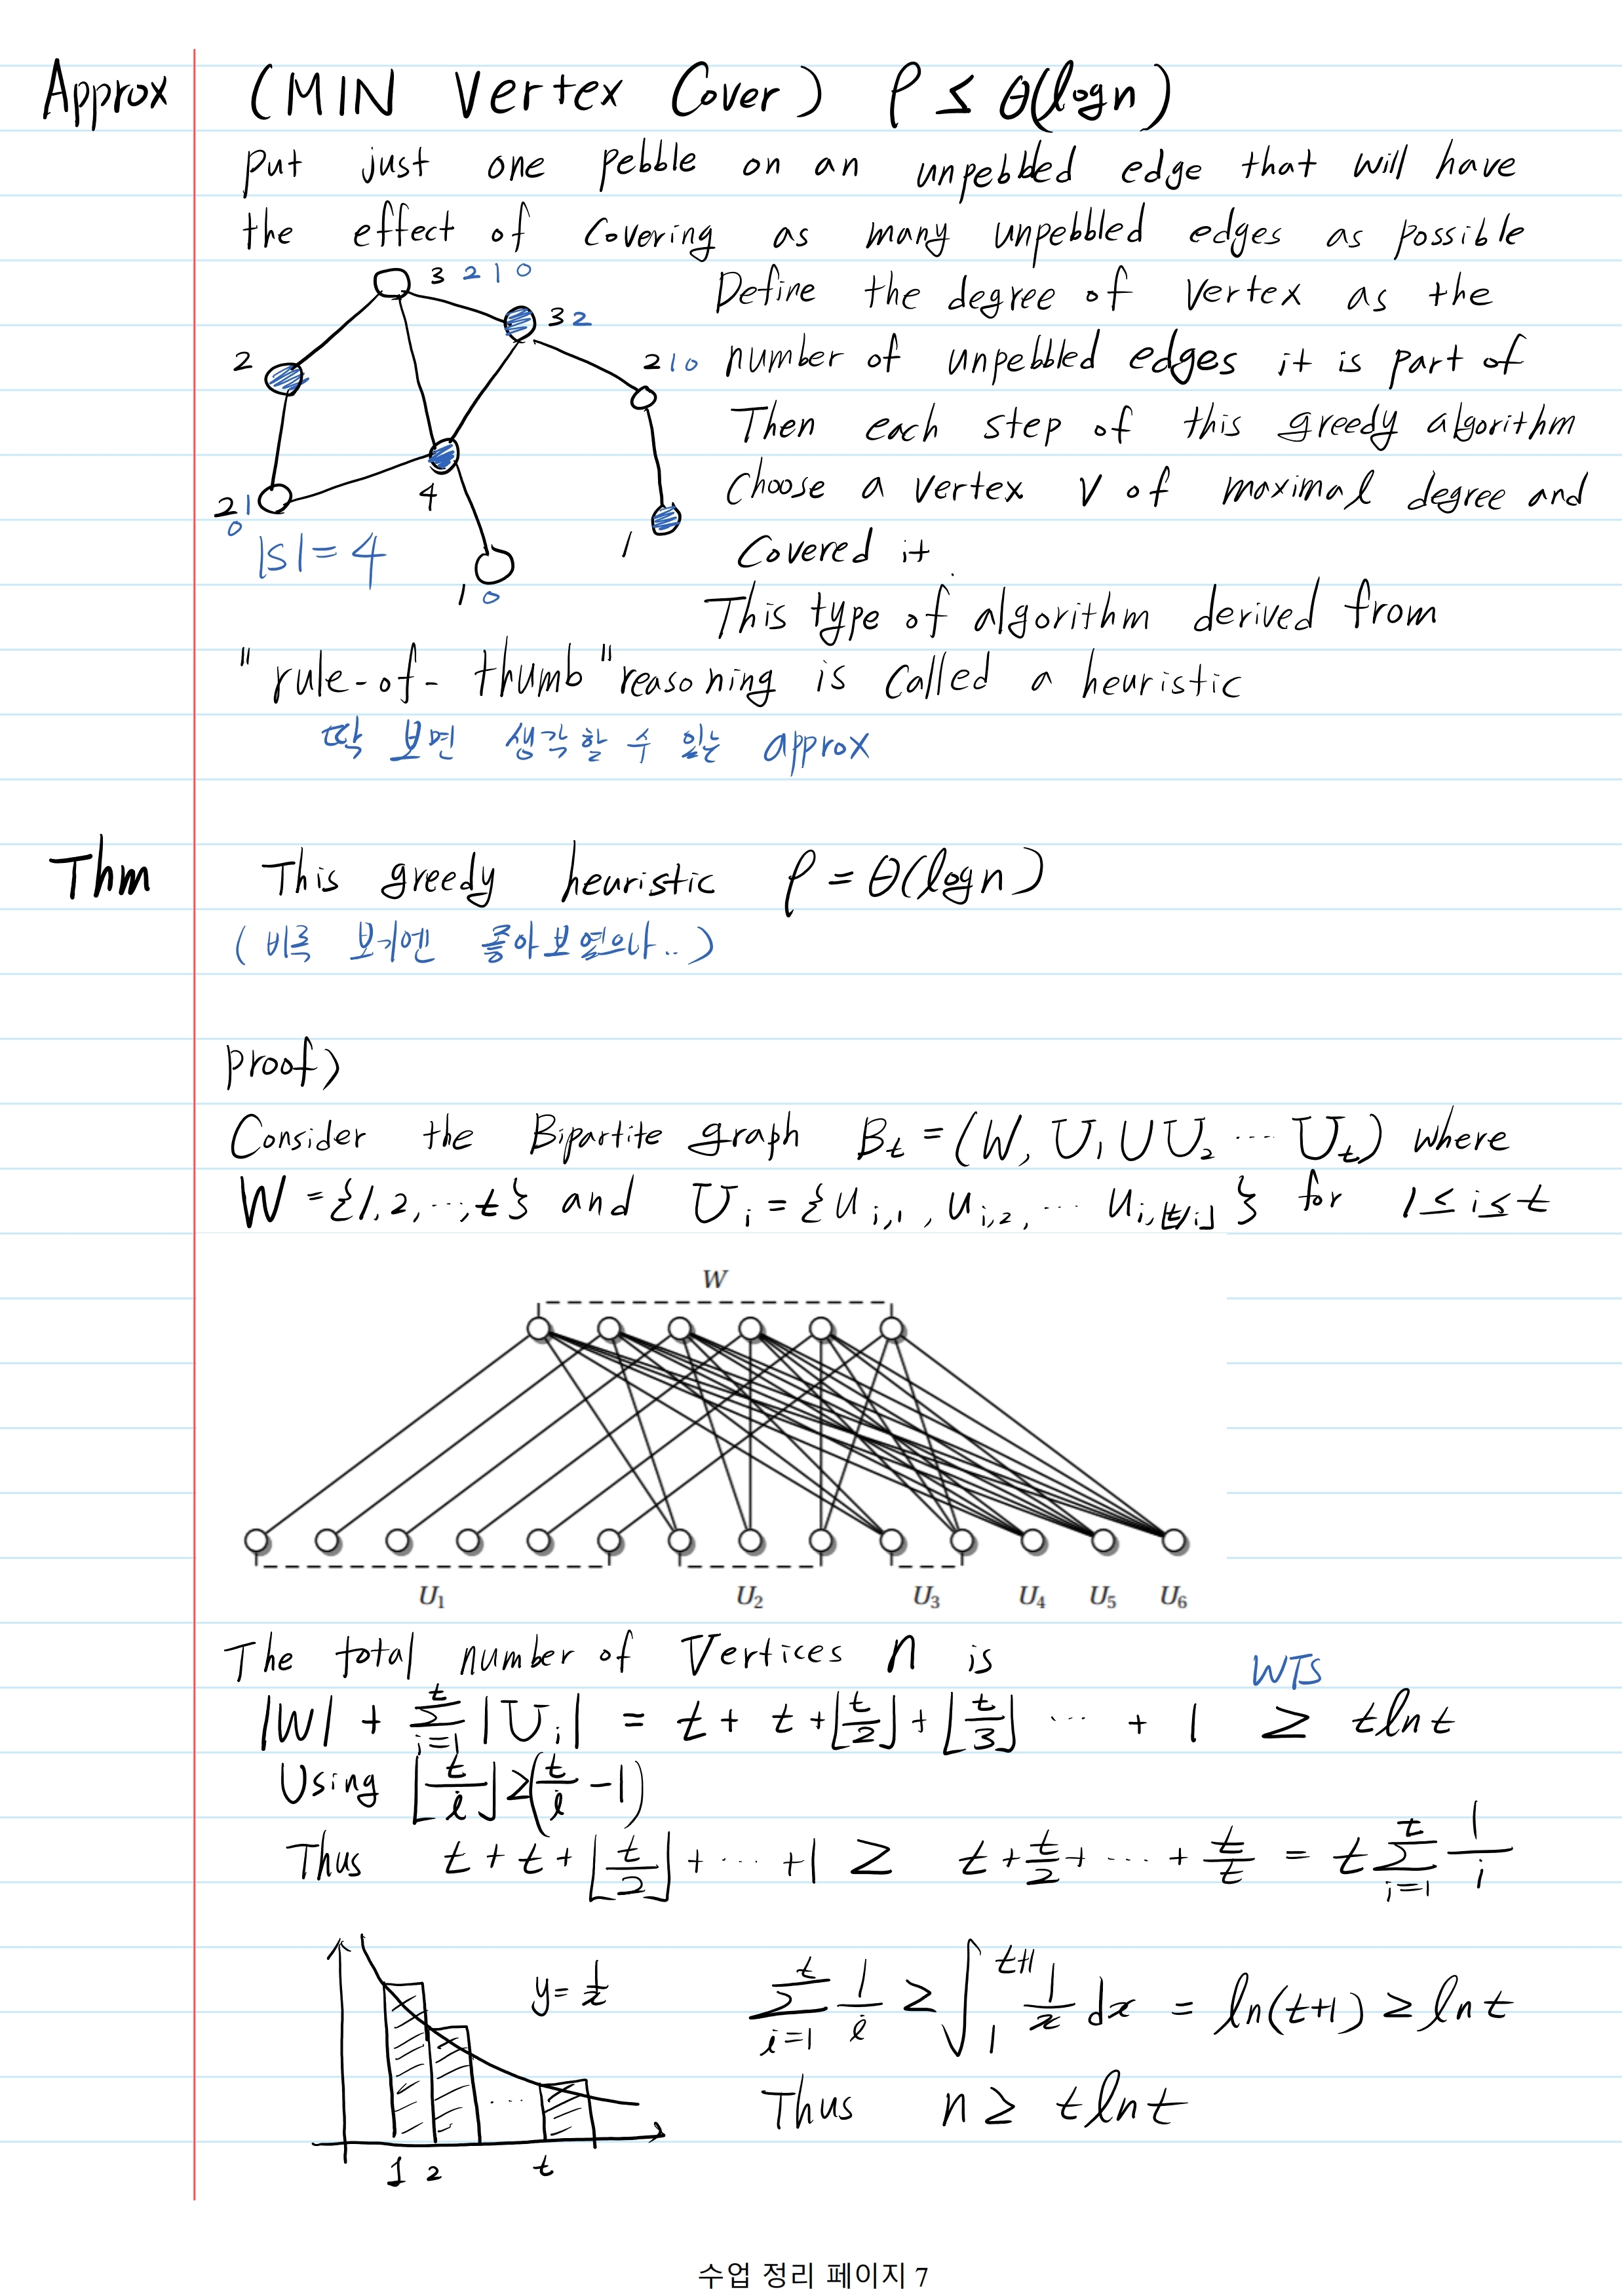 Approx (MIN Vertex Cover) ρ ≤ θ(logn)
Put just one pebble on an unpebbled edge that will have
the effect of Covering as many unpebbled edges as possible
3 2 1 0
3 2
2
2 1 0
4
2 1
0
1
1 0
|S| = 4
Define the degree of vertex as the
number of unpebbled edges it is part of
Then each step of this greedy algorithm
Choose a vertex V of maximal degree and
Covered it
This type of algorithm derived from
"rule-of-thumb" reasoning is called a heuristic
딱 보면 생각할 수 있는 approx
Thm This greedy heuristic ρ = θ(logn)
(비록 보기엔 좋아보였으나..)
proof)
Consider the Bipartite graph B_t = (W, U_1 ∪ U_2 ... U_t) where
W = {1, 2, ..., t} and U_i = {u_{i,1}, u_{i,2}, ... u_{i,⌊t/i⌋}} for 1 ≤ i ≤ t
W
U_1 U_2 U_3 U_4 U_5 U_6
The total number of Vertices n is
WTS
|W| + Σ_{i=1}^{t} |U_i| = t + t + ⌊t/2⌋ + ⌊t/3⌋ ... + 1 ≥ t ln t
Using ⌊t/i⌋ ≥ (t/i - 1)
Thus t + t + ⌊t/2⌋ + ... + 1 ≥ t + t/2 + ... + t/t = t Σ_{i=1}^{t} 1/i
y = 1/x
1 2 t
Σ_{i=1}^{t} 1/i ≥ ∫_1^{t+1} 1/x dx = ln(t+1) ≥ ln t
Thus n ≥ t ln t
수업 정리 페이지 7